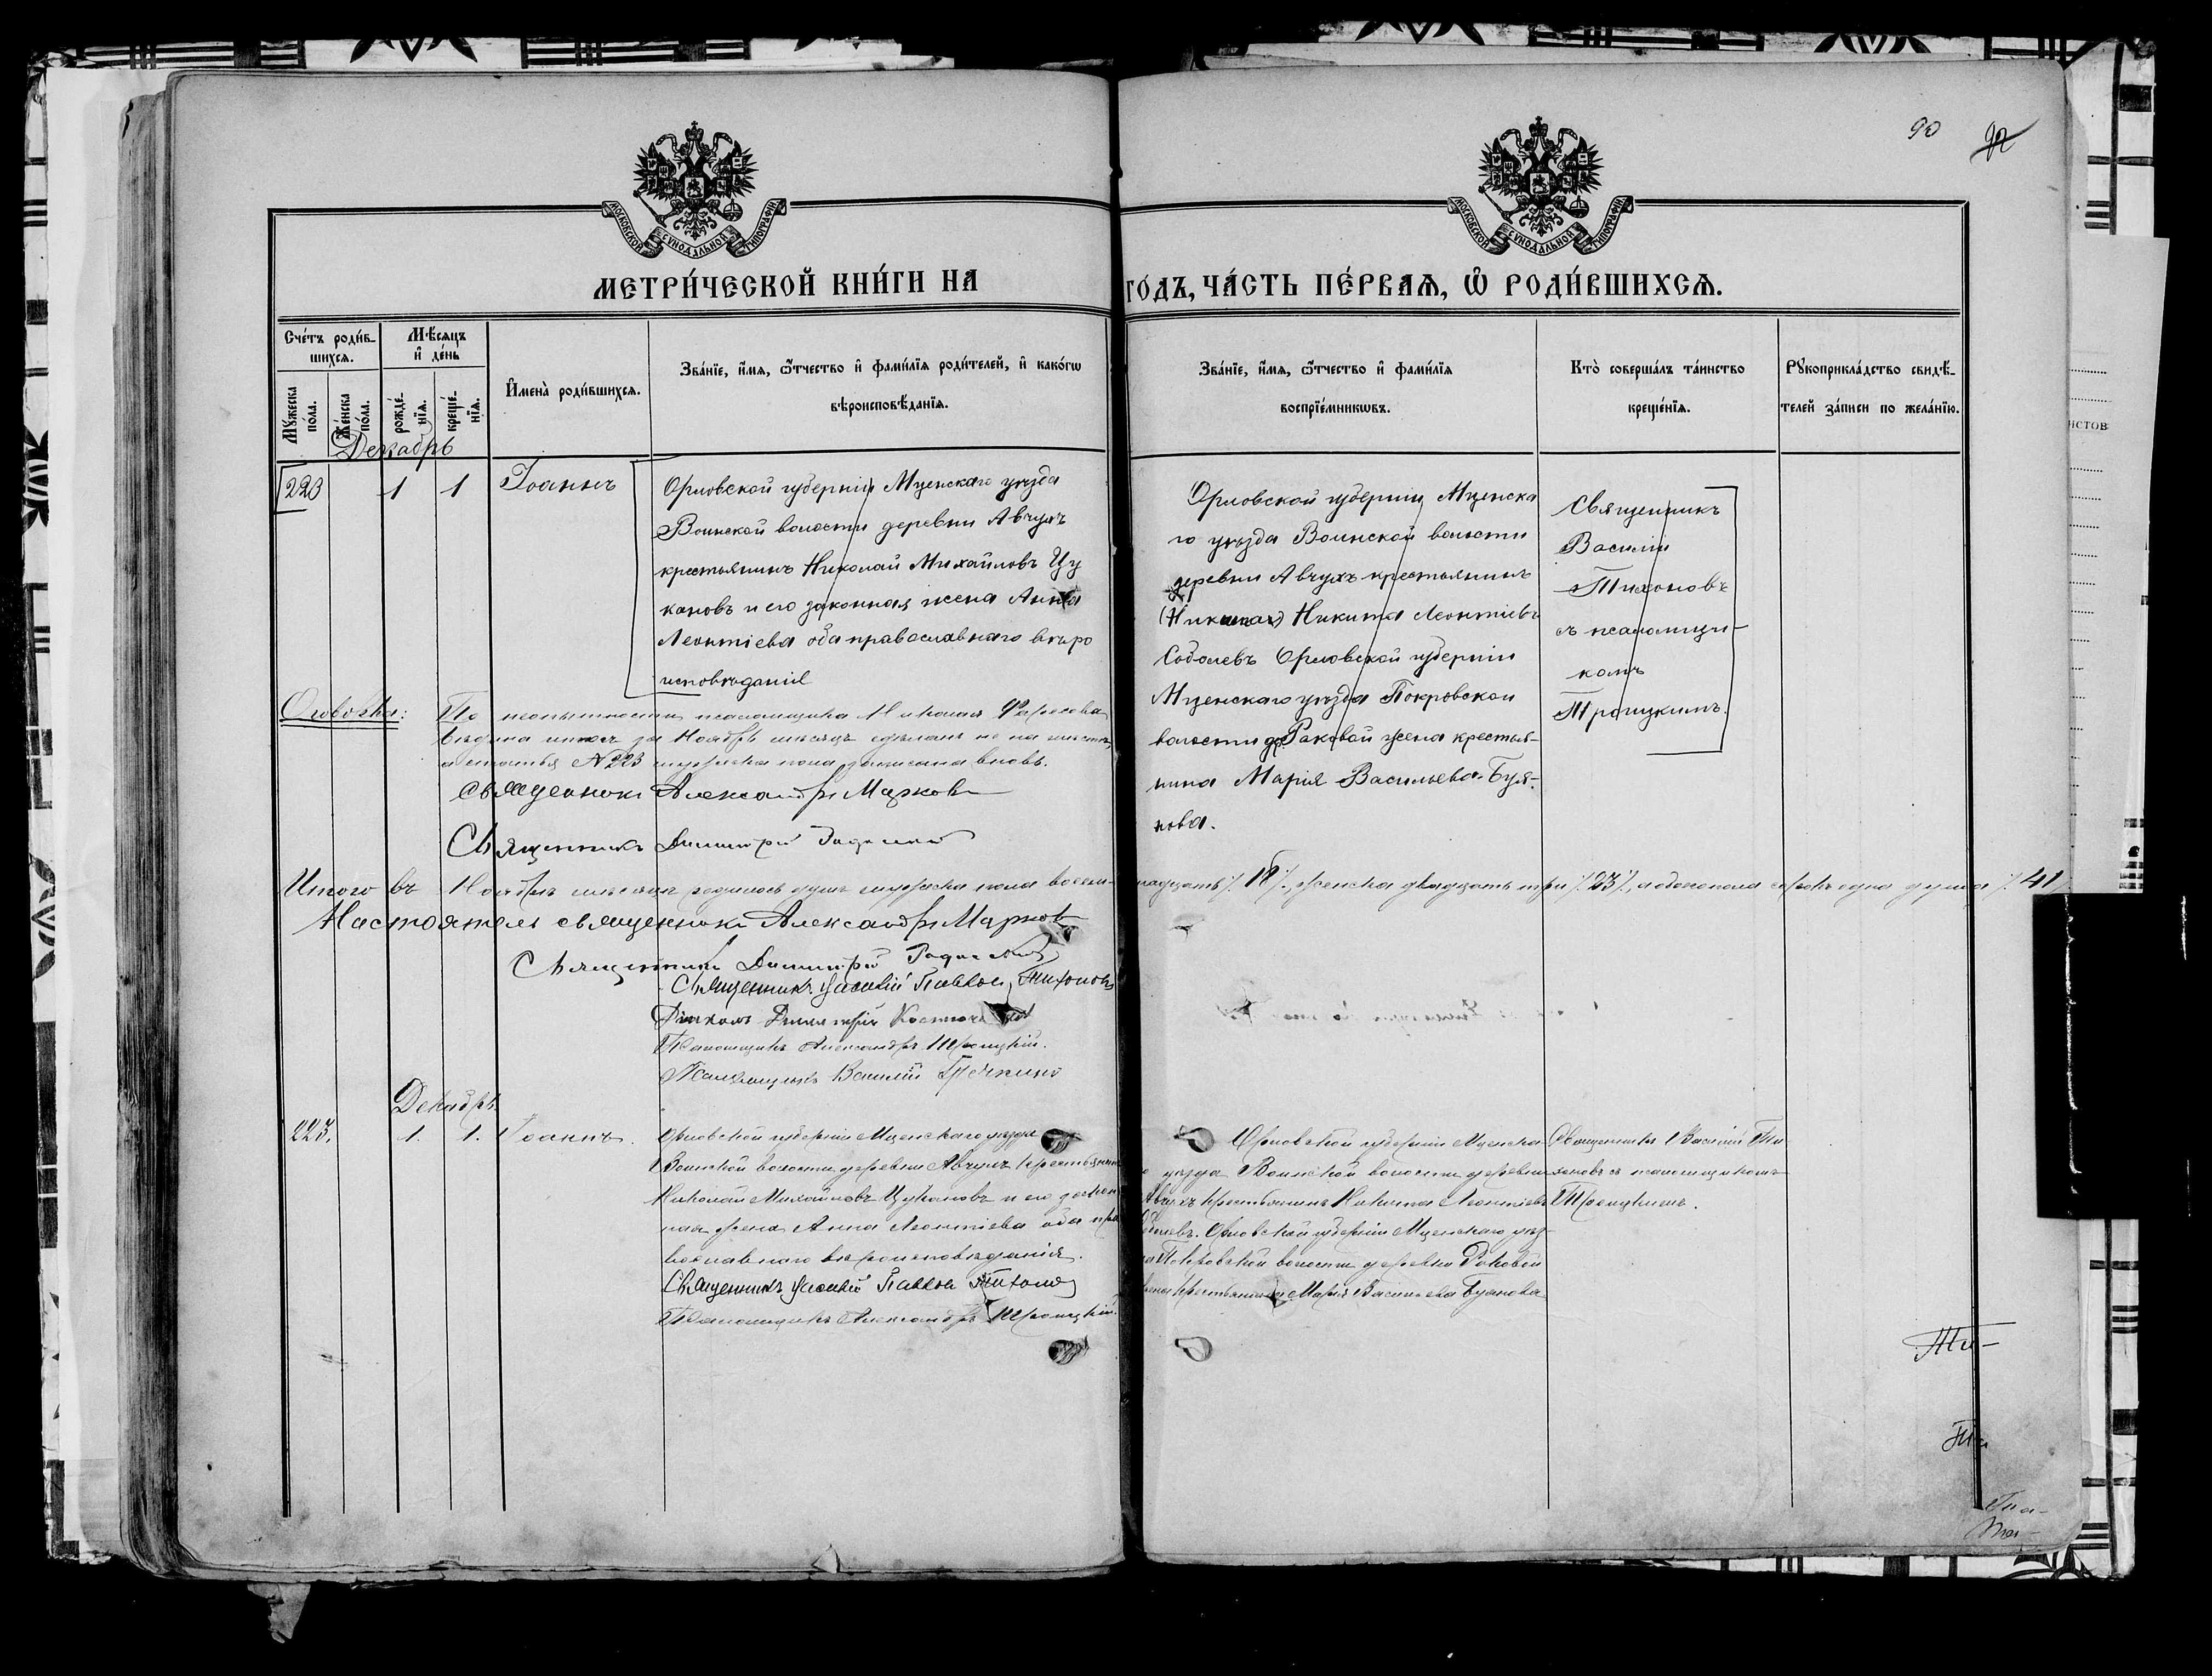 90
МОСКОВСКОЙ СѴНОДАЛЬНОЙ ТИПОГРАФІИ
МОСКОВСКОЙ СѴНОДАЛЬНОЙ ТИПОГРАФІИ
МЕТРИ́ЧЕСКОЙ КНИ́ГИ НА
ГО́ДЪ, ЧА́СТЬ ПЕ́РВАѦ, Ѿ РОДИ́ВШИХСѦ.
Сче́тъ роди́в-
шихсѧ.
Мѣ́сѧцъ
и҆ де́нь
Мꙋ́жеска
по́ла.
Же́нска
по́ла.
рожде́-
нїѧ.
креще́-
нїѧ.
И҆мена̀ роди́вшихсѧ.
Зва́нїе, и҆́мѧ, ѻ҆́тчество и҆ фами́лїѧ роди́телей, и҆ како́гѡ
вѣроисповѣ́данїѧ.
Зва́нїе, и҆́мѧ, ѻ҆́тчество и҆ фами́лїѧ
воспрїе́мникѡвъ.
Кто̀ соверша́лъ та́инство
креще́нїѧ.
Рꙋкоприкла́дство свидѣ́-
телей за́писи по жела́нїю.
Декабрь
223 1 1 Іоаннъ
Орловской губерніи Мценскаго уѣзда
Воинской волости деревни Авчухъ
крестьянинъ Николай Михайловъ Цу
кановъ и его законная жена Анна
Леонтіева оба православнаго вѣро
исповѣданія
Орловской губерніи Мценска
го уѣзда Воинской волости
деревни Авчухъ крестьянинъ
Никита Леонтіевъ
Соболевъ Орловской губерніи
Мценскаго уѣзда Покровской
волости д. Раковой жена крестья-
нина Марія Васильева Буя-
нова.
Священникъ
Василій
Тихоновъ
съ псаломщи-
комъ
Троицкимъ.
Оговорка: По неопытности псаломщика Николая
за Ноябрь мѣсяцъ сдѣланъ не на мѣстѣ,
а статья №223 мужеска пола записана вновь.
Священникъ Александръ Марковъ
Священникъ Димитрій
Итого въ Ноябрѣ мѣсяцѣ родилось душъ мужеска пола восем-
надцать /. 18 /. женска двадцать три /. 23 /, а обоего пола сорокъ одна душа /. 41 /
Настоятель священникъ Александръ Марковъ
Священникъ Димитрій
Священникъ Василій Павловъ Тихоновъ
Діаконъ Димитрій
Псаломщикъ Александръ Троицкій.
Псаломщикъ Василій
Декабрь
223. 1. 1. Іоаннъ.
Орловской губерніи Мценскаго уѣзда
Воинской волости деревни Авчухъ крестьянинъ
Николай Михайловъ Цукановъ и его закон
ная жена Анна Леонтіева оба пра
вославнаго вѣроисповѣданія.
Священникъ Василій Павловъ Тихоновъ
Псаломщикъ Александръ Троицкій.
Орловской губерніи Мценска-
го уѣзда Воинской волости деревни
Авчухъ крестьянинъ Никита Леонтіевъ
Соболевъ. Орловской губерніи Мценскаго уѣз-
да Покровской волости деревни Раковой
жена крестьянина Марія Васильева Буянова
Священникъ Василій Ти-
хоновъ съ псаломщикомъ
Троицкимъ.
Ти-